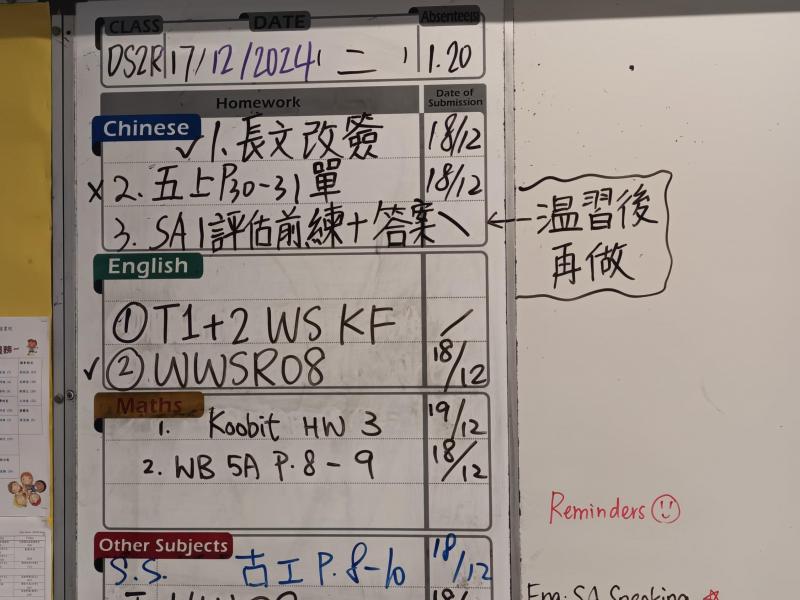 CLASS DATE Absentees
DS2R 17/12/2024 ( 二 ) 1.20
Homework Date of Submission
Chinese
✓ 1. 長文改簽 18/12
x 2. 五上P30-31單 18/12
3. SA1評估前練+答案 \ ← 温習後
再做
English
① T1+2 WS KF /
✓ ② WWSR08 18/12
Maths
1. Koobit HW 3 19/12
2. WB 5A P.8-9 18/12
Reminders ☺
Other Subjects
S.S. 古工 P.8-10 18/12